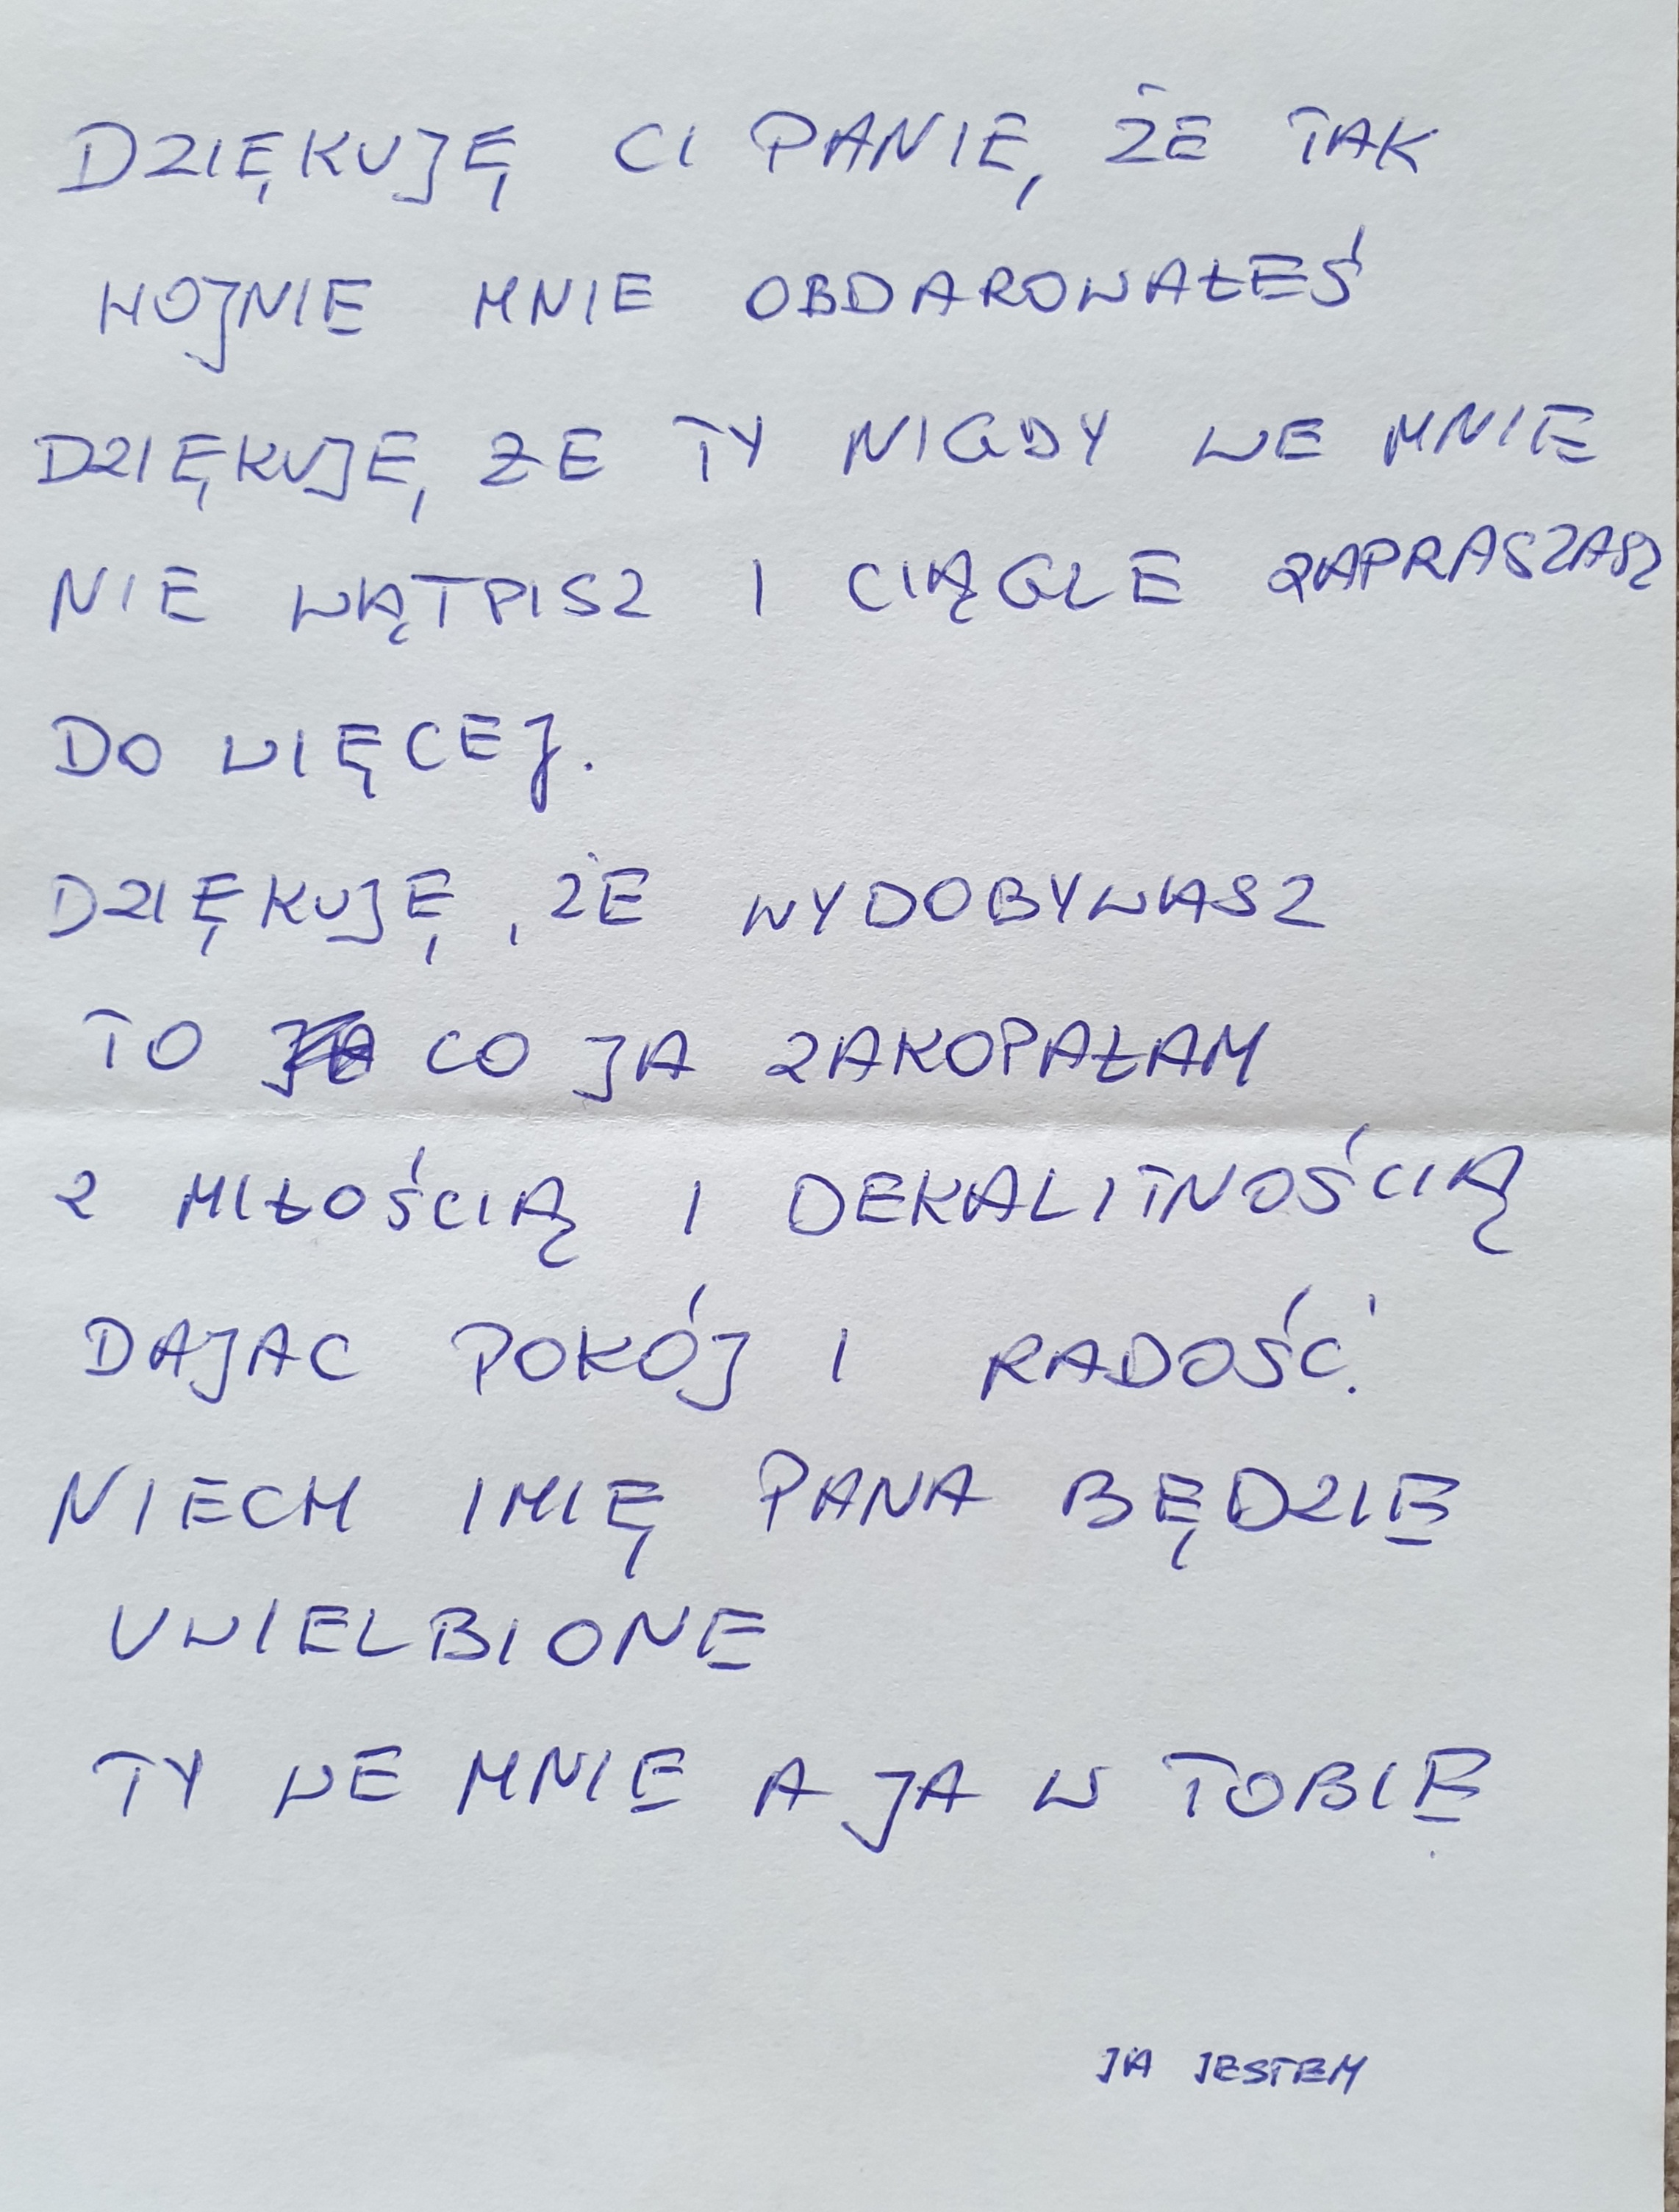 DZIĘKUJĘ CI PANIE, ŻE TAK
HOJNIE MNIE OBDAROWAŁEŚ
DZIĘKUJĘ, ŻE TY NIGDY WE MNIE
NIE WĄTPISZ I CIĄGLE ZAPRASZASZ
DO WIĘCEJ.
DZIĘKUJĘ, ŻE WYDOBYWASZ
TO CO JA ZAKOPAŁAM
Z MIŁOŚCIĄ I DEKALITNOŚCIĄ
DAJAC POKÓJ I RADOŚĆ.
NIECH IMIĘ PANA BĘDZIE
UWIELBIONE
TY WE MNIE A JA W TOBIE
JA JESTEM